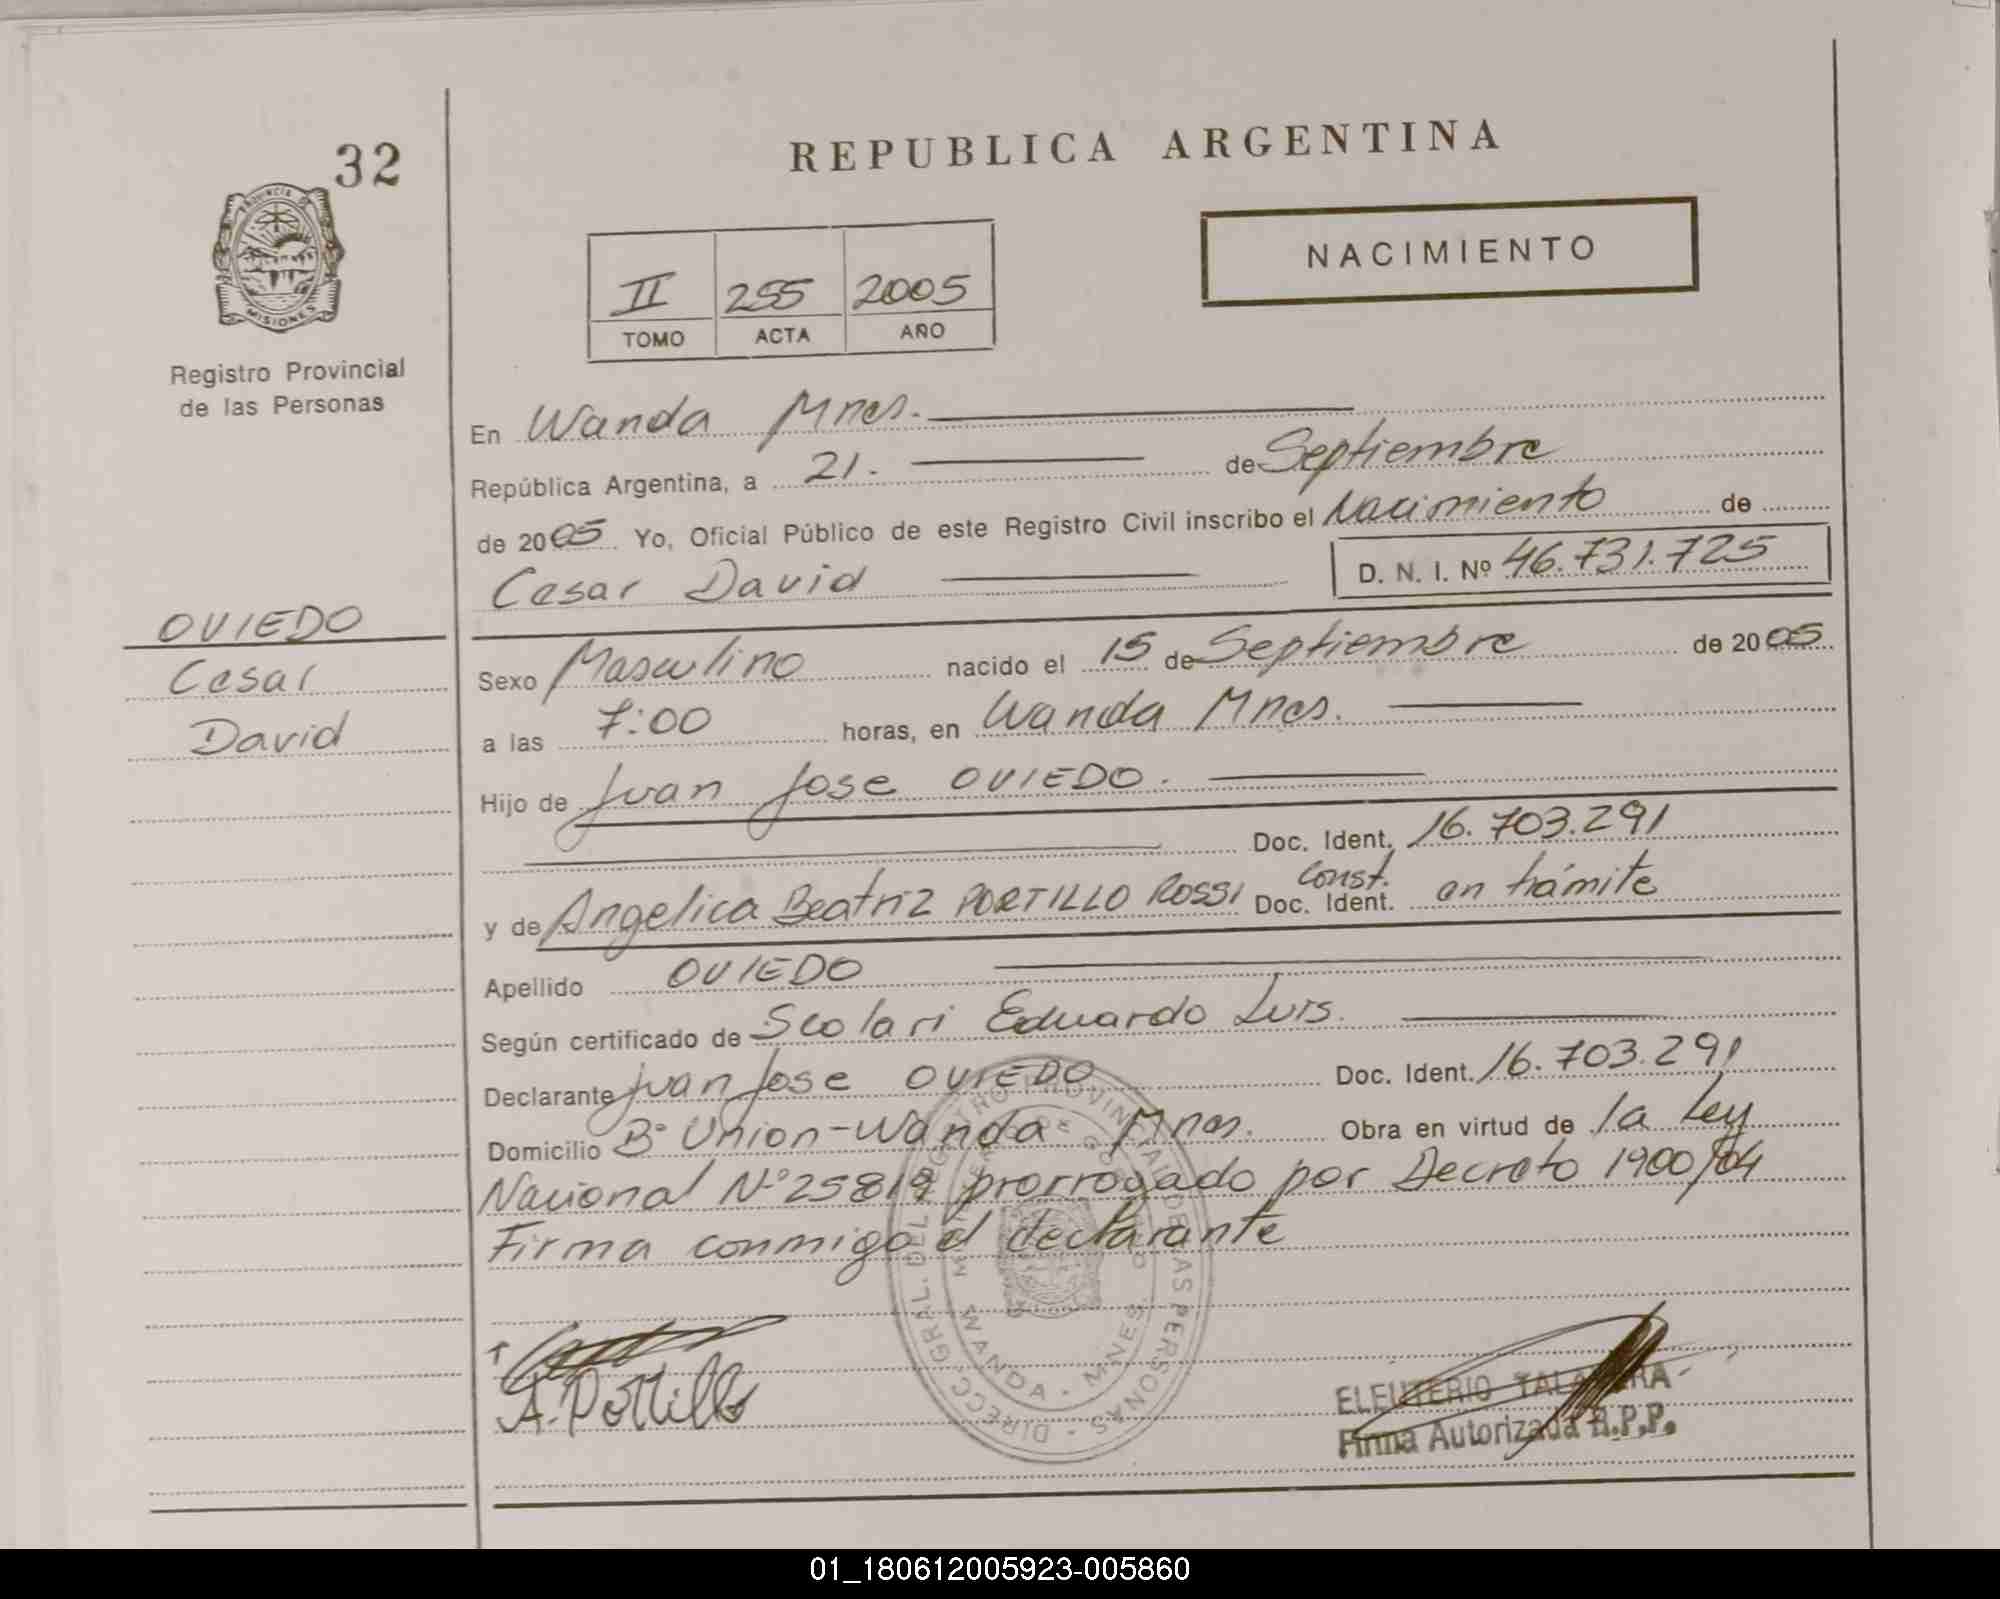 32
REPUBLICA ARGENTINA
PROVINCIA DE
MISIONES
NACIMIENTO
II 255 2005
TOMO ACTA AÑO
Registro Provincial
de las Personas
En Wanda Mnes.
República Argentina, a 21. de Septiembre
de 2005 Yo, Oficial Público de este Registro Civil inscribo el Nacimiento de
Cesar David D. N. I. Nº 46.731.725
OVIEDO
Cesar
David
Sexo Masculino nacido el 15 de Septiembre de 2005
a las 7:00 horas, en Wanda Mnes.
Hijo de Juan Jose OVIEDO.
Doc. Ident. 16.703.291
y de Angelica Beatriz PORTILLO ROSSI Const. Doc. Ident. en trámite
Apellido OVIEDO
Según certificado de Scolari Eduardo Luis.
Declarante Juan Jose OVIEDO Doc. Ident. 16.703.291
Domicilio Bº Union-Wanda Mnes. Obra en virtud de la Ley
Nacional Nº 25819 prorrogado por Decreto 1900/04
Firma conmigo el declarante
DIRECC. GRAL. DEL REGISTRO PROVINCIAL DE LAS PERSONAS
WANDA - MNES.
A. Portillo
ELEUTERIO
Firma Autorizada R.P.P.
01_180612005923-005860